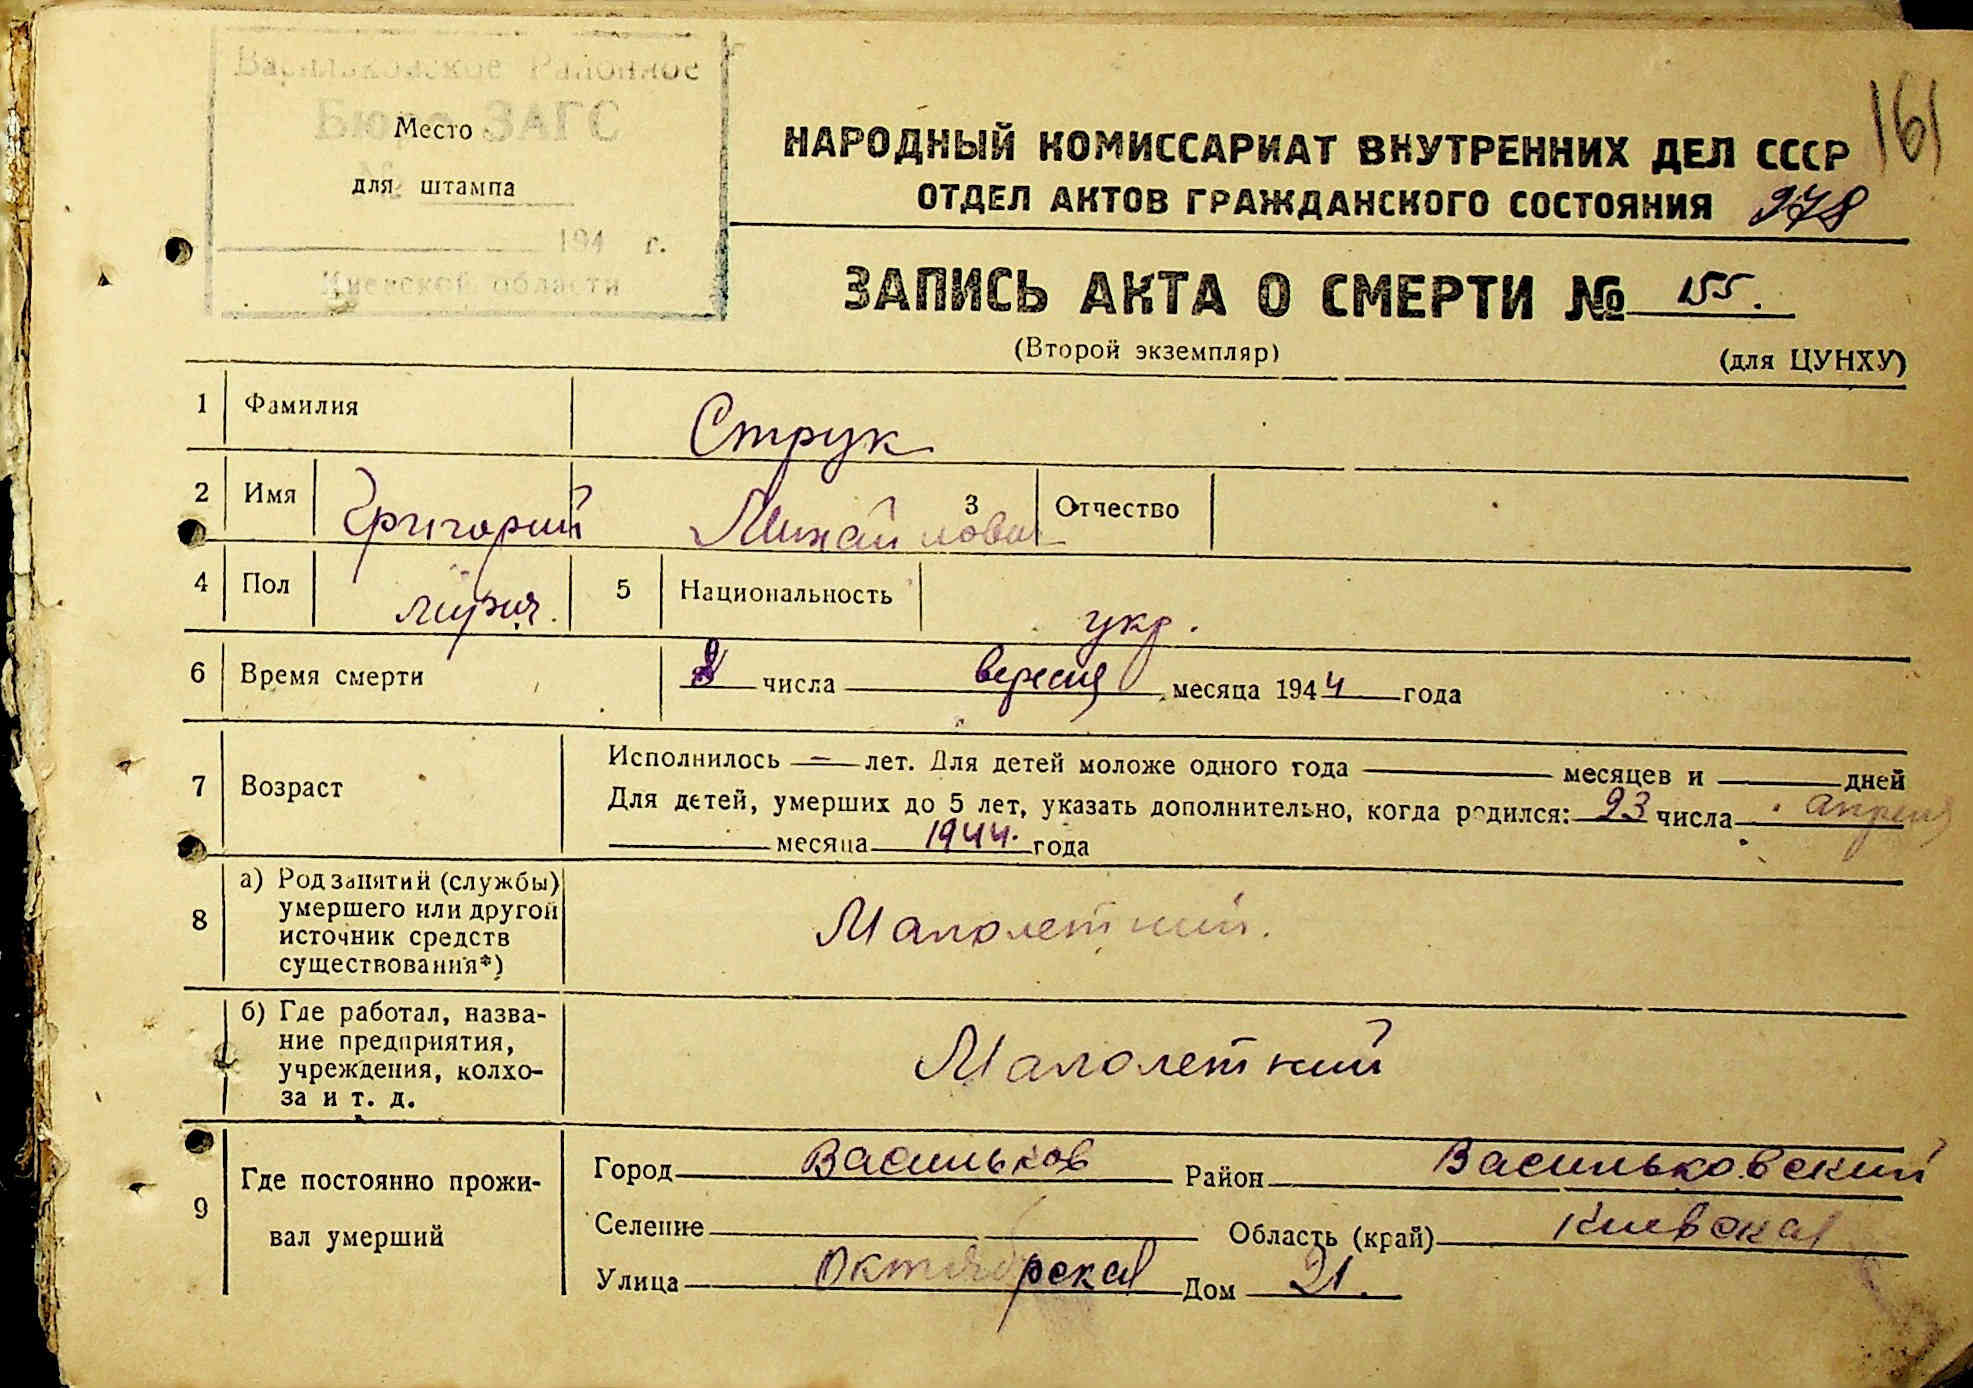 Васильковское Районное
Бюро ЗАГС
Место
для штампа
№
194 г.
Киевской области
161
НАРОДНЫЙ КОМИССАРИАТ ВНУТРЕННИХ ДЕЛ СССР
ОТДЕЛ АКТОВ ГРАЖДАНСКОГО СОСТОЯНИЯ 278
ЗАПИСЬ АКТА О СМЕРТИ № 155.
(Второй экземпляр) (для ЦУНХУ)
1 Фамилия Струк
2 Имя Григорий Михайлович 3 Отчество
4 Пол 5 Национальность укр.
6 Время смерти числа вересня месяца 1944 года
7 Возраст
Исполнилось — лет. Для детей моложе одного года месяцев и дней
Для детей, умерших до 5 лет, указать дополнительно, когда родился: 23 числа апреля
месяца 1944. года
8 а) Род занятий (службы)
умершего или другой
источник средств
существования*)
Малолетний.
б) Где работал, назва-
ние предприятия,
учреждения, колхо-
за и т. д.
Малолетний
9 Где постоянно прожи-
вал умерший
Город Васильков Район Васильковский
Селение Область (край) Киевская
Улица Октябрьская Дом 21.